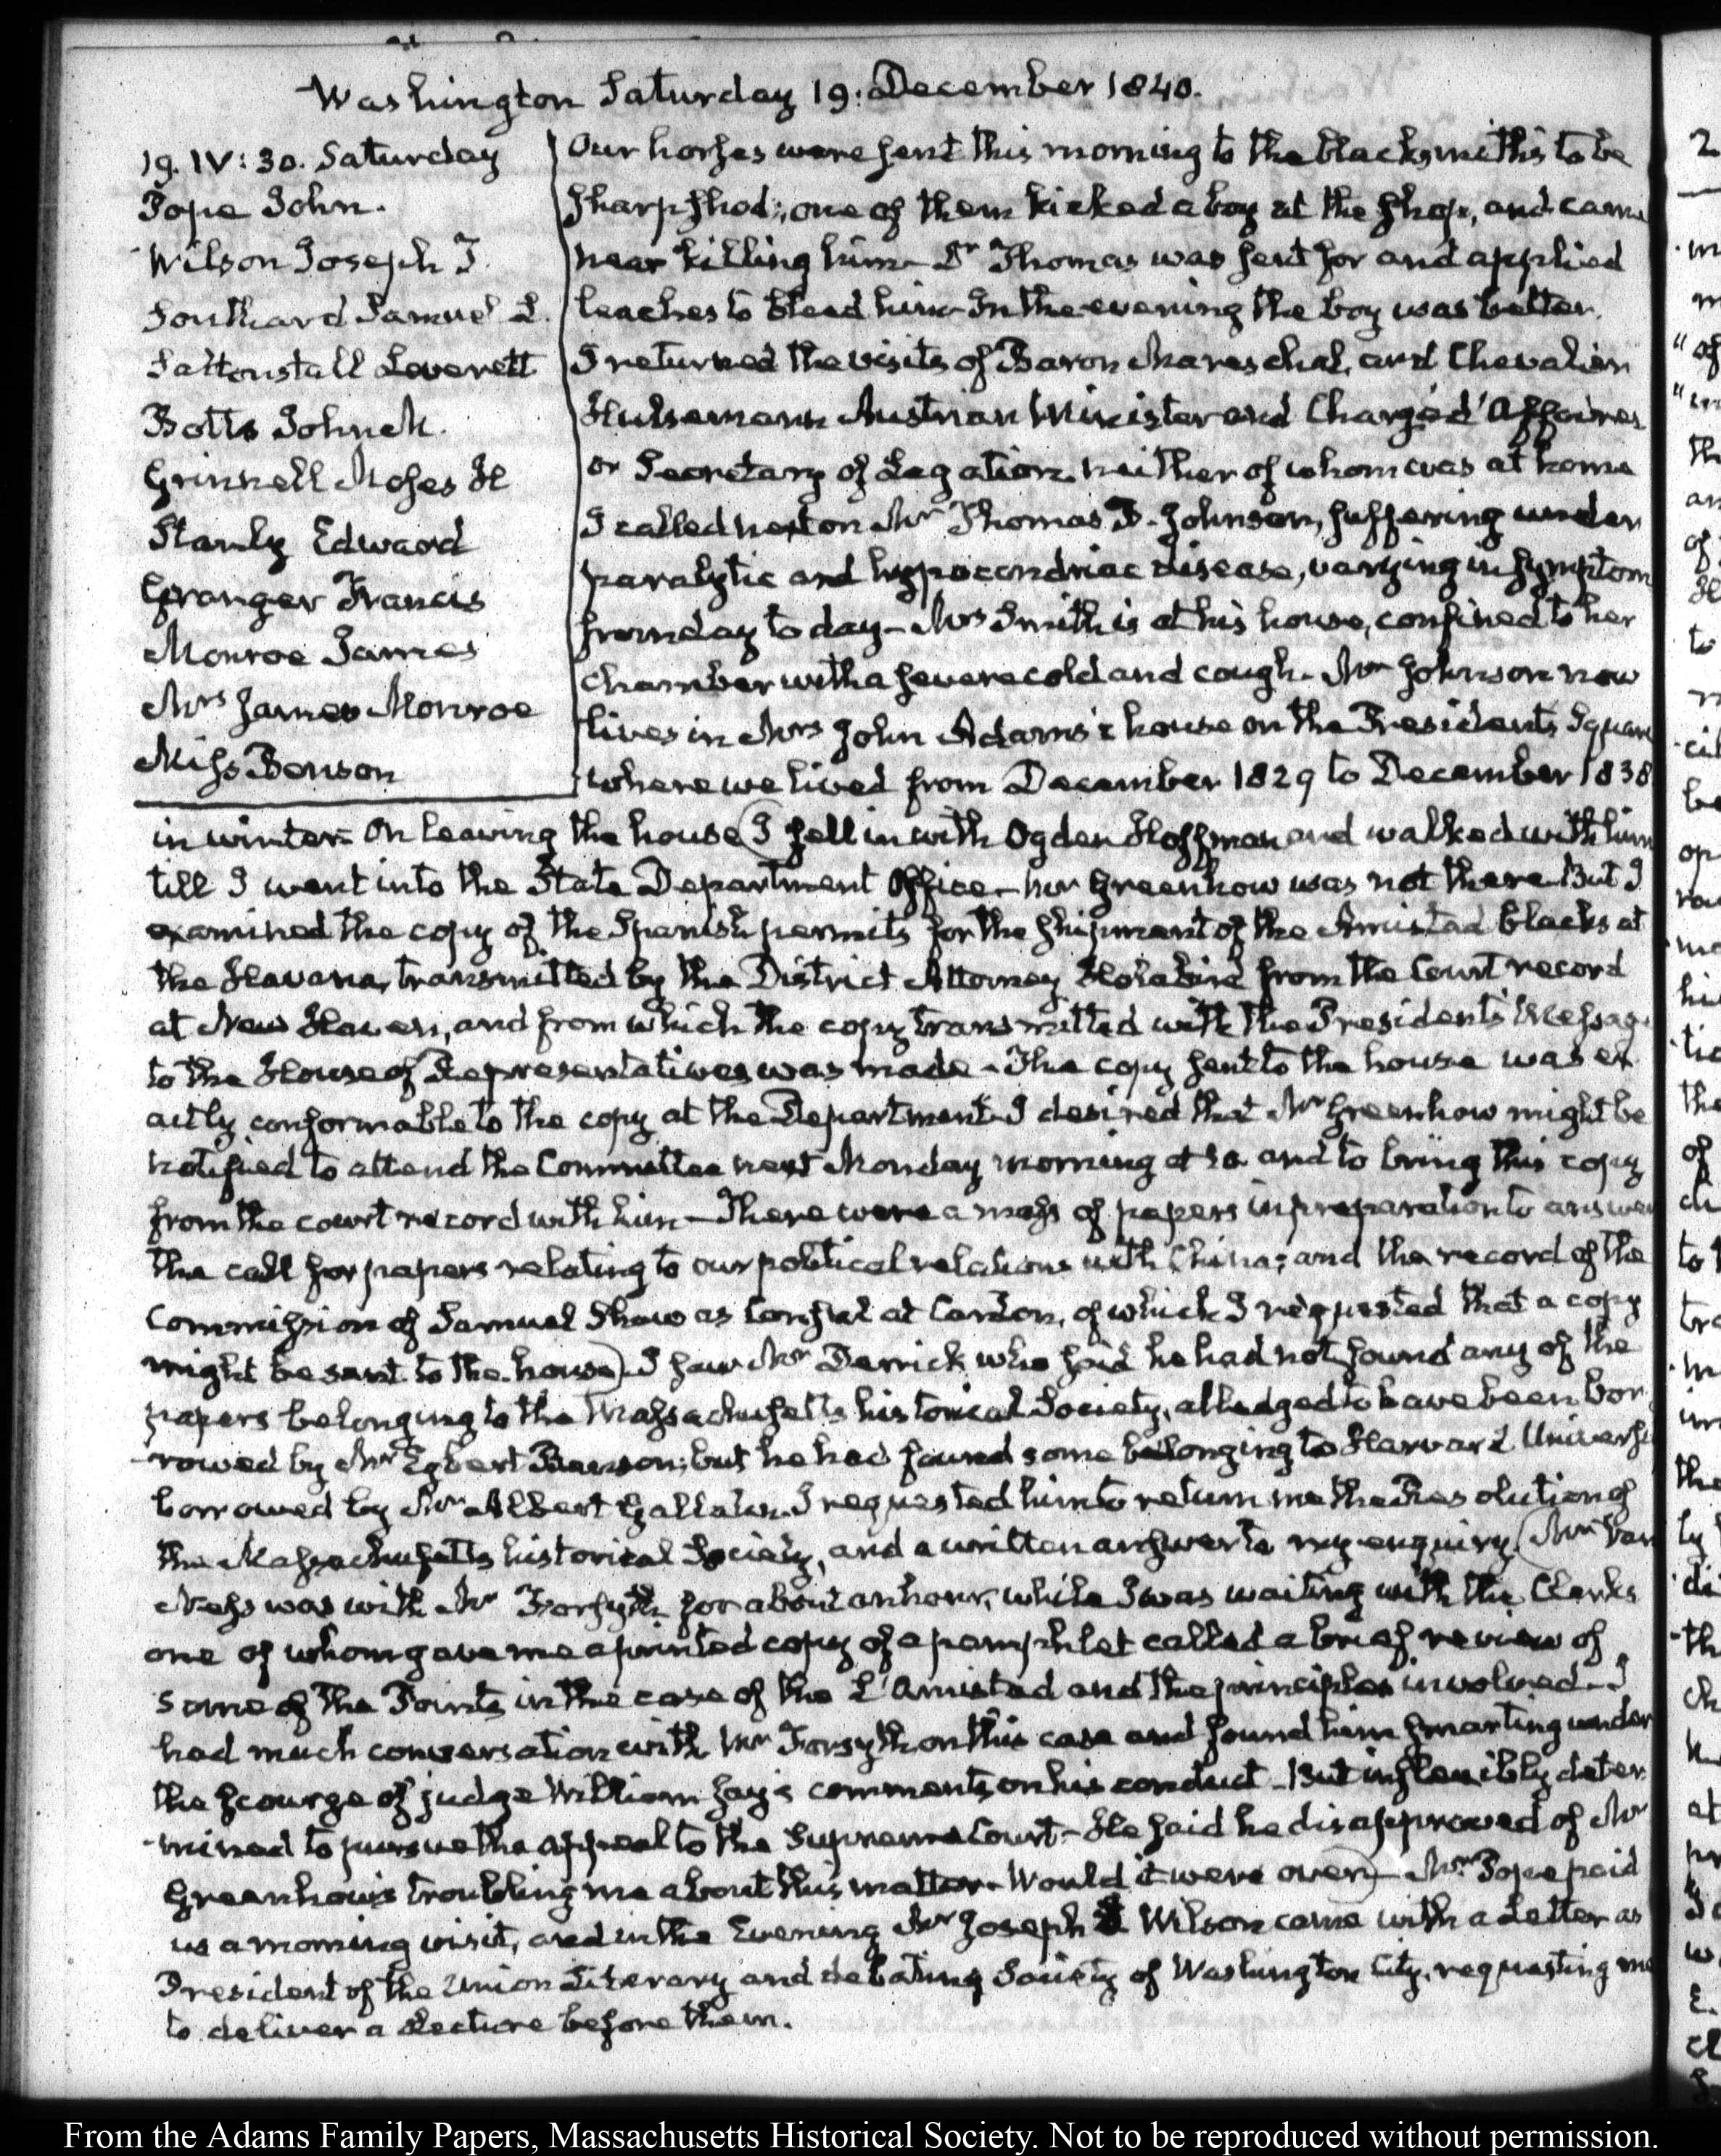 Washington Saturday 19. December 1840.
19. IV: 30. Saturday
Pope John.
Wilson Joseph I.
Southard Samuel L.
Saltonstall Leverett
Botts John M.
Grinnell Moses H
Stanly Edward
Granger Francis
Monroe James
Mrs James Monroe
Miss Benson
Our horses were sent this morning to the blacksmith's to be
sharp shod; one of them kicked a boy at the shop, and came
near killing him— Dr Thomas was sent for and applied
leaches to bleed him— In the evening the boy was better.
I returned the visits of Baron Mareschal, and Chevalier
Hulsemann Austrian Minister and Chargé d'Affaires
or Secretary of Legation. neither of whom was at home
I called next on Mr Thomas B. Johnson, suffering under
paralytic and hypocondriac disease, varying in symptom
from day to day— Mrs Smith is at his house, confined to her
chamber with a severe cold and cough. Mr Johnson now
lives in Mrs John Adams's house on the Presidents Square
where we lived from December 1829 to December 1838
in winter. On leaving the house (I fell in with Ogden Hoffman and walked with him
till I went into the State Department Office— Mr Greenhow was not there But I
examined the copy of the Spanish permits for the shipment of the Amistad blacks at
the Havana, transmitted by the District Attorney Holabird from the Court record
at New Haven, and from which the copy transmitted with the Presidents Message
to the House of Representatives was made— The copy sent to the house was ex
actly conformable to the copy at the Department I desired that Mr Greenhow might be
notified to attend the Committee next Monday morning at 10 and to bring this copy
from the court record with him— There were a mass of papers in preparation to answer
the call for papers relating to our political relations with China; and the record of the
Commission of Samuel Shaw as Consul at Canton, of which I requested that a copy
might be sent to the house). I saw Mr Derrick who said he had not found any of the
papers belonging to the Massachusetts historical Society, alledged to have been bor
rowed by Mr Egbert Benson; but he had found some belonging to Harvard University
borrowed by Mr Albert Gallatin. I requested him to return me the Resolution of
the Massachusetts historical Society, and a written answer to my enquiry. (Mr Van
Ness was with Mr Forsyth for about an hour, while I was waiting with the Clerks
one of whom gave me a printed copy of a pamphlet called a brief review of
some of the Points in the case of the L'Amistad and the principles involved— I
had much conversation with Mr Forsyth on this case and found him smarting under
the scourge of judge William Jay's comments on his conduct— But inflexibly deter
mined to pursue the appeal to the Supreme Court— He said he disapproved of Mr
Greenhow's troubling me about this matter. Would it were over)— Mr Pope paid
us a morning visit, and in the Evening Mr Joseph I Wilson came with a Letter as
President of the Union Literary and debating Society of Washington City, requesting me
to deliver a Lecture before them.
From the Adams Family Papers, Massachusetts Historical Society. Not to be reproduced without permission.